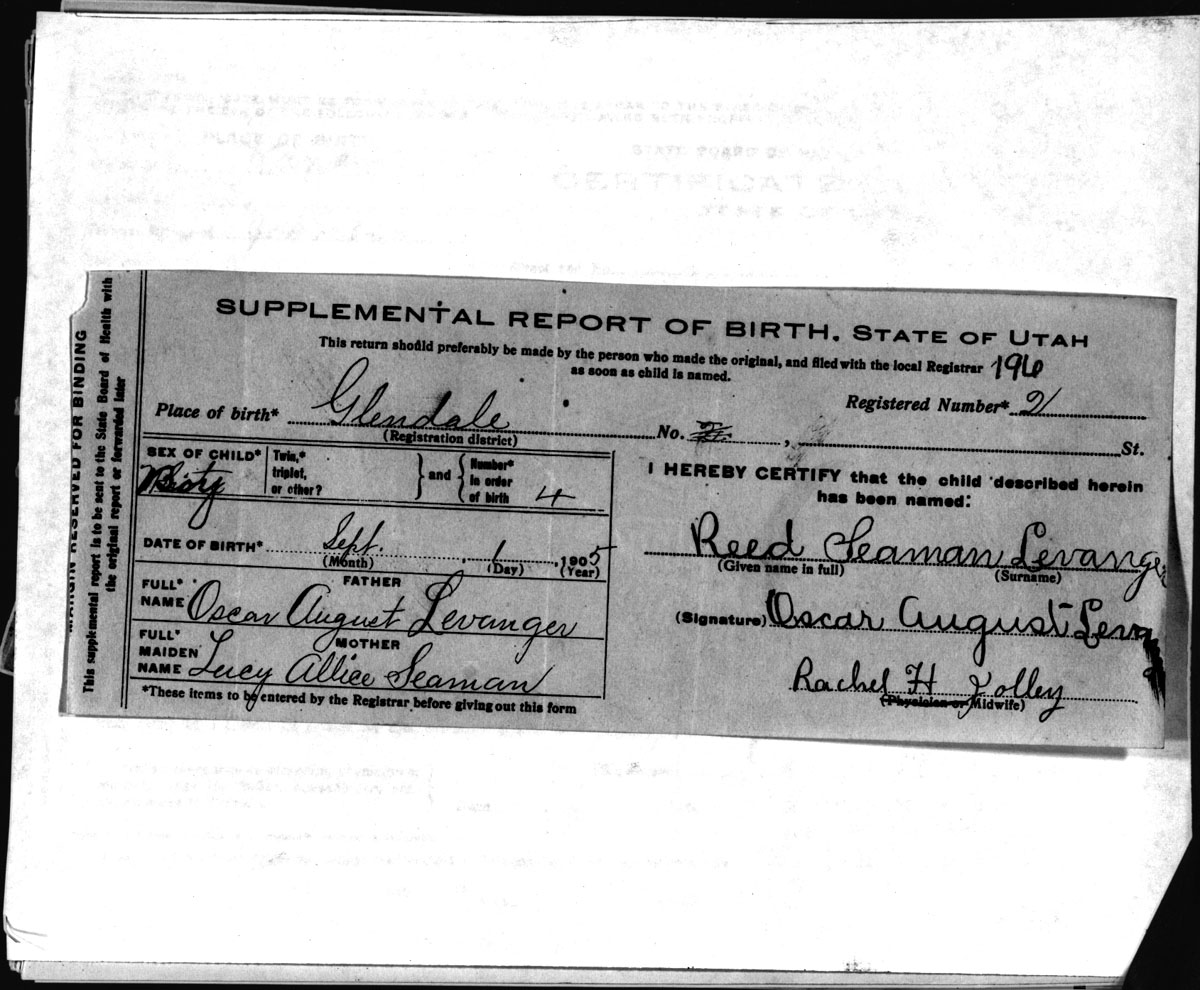 SUPPLEMENTAL REPORT OF BIRTH. STATE OF UTAH
This return should preferably be made by the person who made the original, and filed with the local Registrar
as soon as child is named.
196
Place of birth* Glendale
(Registration district)
No.
, St.
Registered Number* 2
MARGIN RESERVED FOR BINDING
This supplemental report is to be sent to the State Board of Health with
the original report or forwarded later
SEX OF CHILD*
Twin,*
triplet,
or other?
and
Number*
in order
of birth 4
DATE OF BIRTH* Sept. 1 1905
(Month) (Day) (Year)
FATHER
FULL*
NAME Oscar August Levanger
MOTHER
FULL*
MAIDEN
NAME Lucy Allice Seaman
*These items to be entered by the Registrar before giving out this form
I HEREBY CERTIFY that the child described herein
has been named:
Reed Seaman Levanger
(Given name in full) (Surname)
(Signature) Oscar August Leva
Rachel H Jolley
(Physician or Midwife)